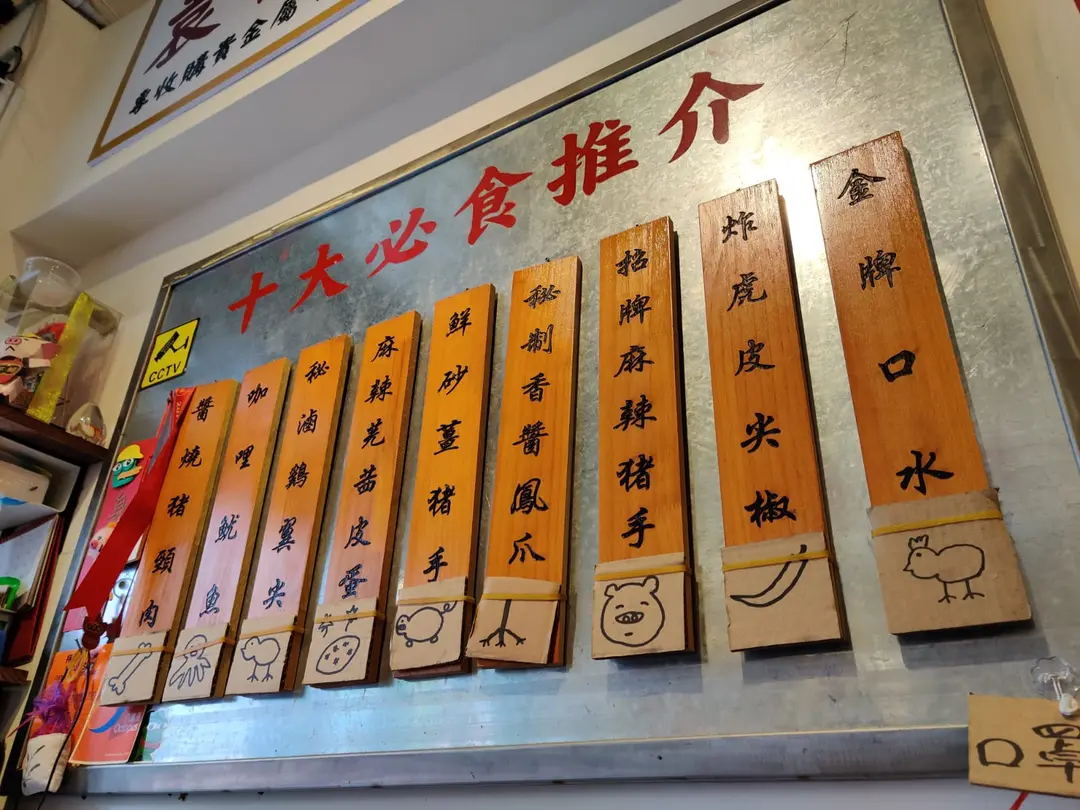 專收購貴金屬
十大必食推介
金牌口水
炸虎皮尖椒
招牌麻辣猪手
秘制香醬鳳爪
鮮砂薑猪手
麻辣芫茜皮蛋
秘滷鷄翼尖
咖哩魷魚
醬燒猪頭肉
CCTV
口罩